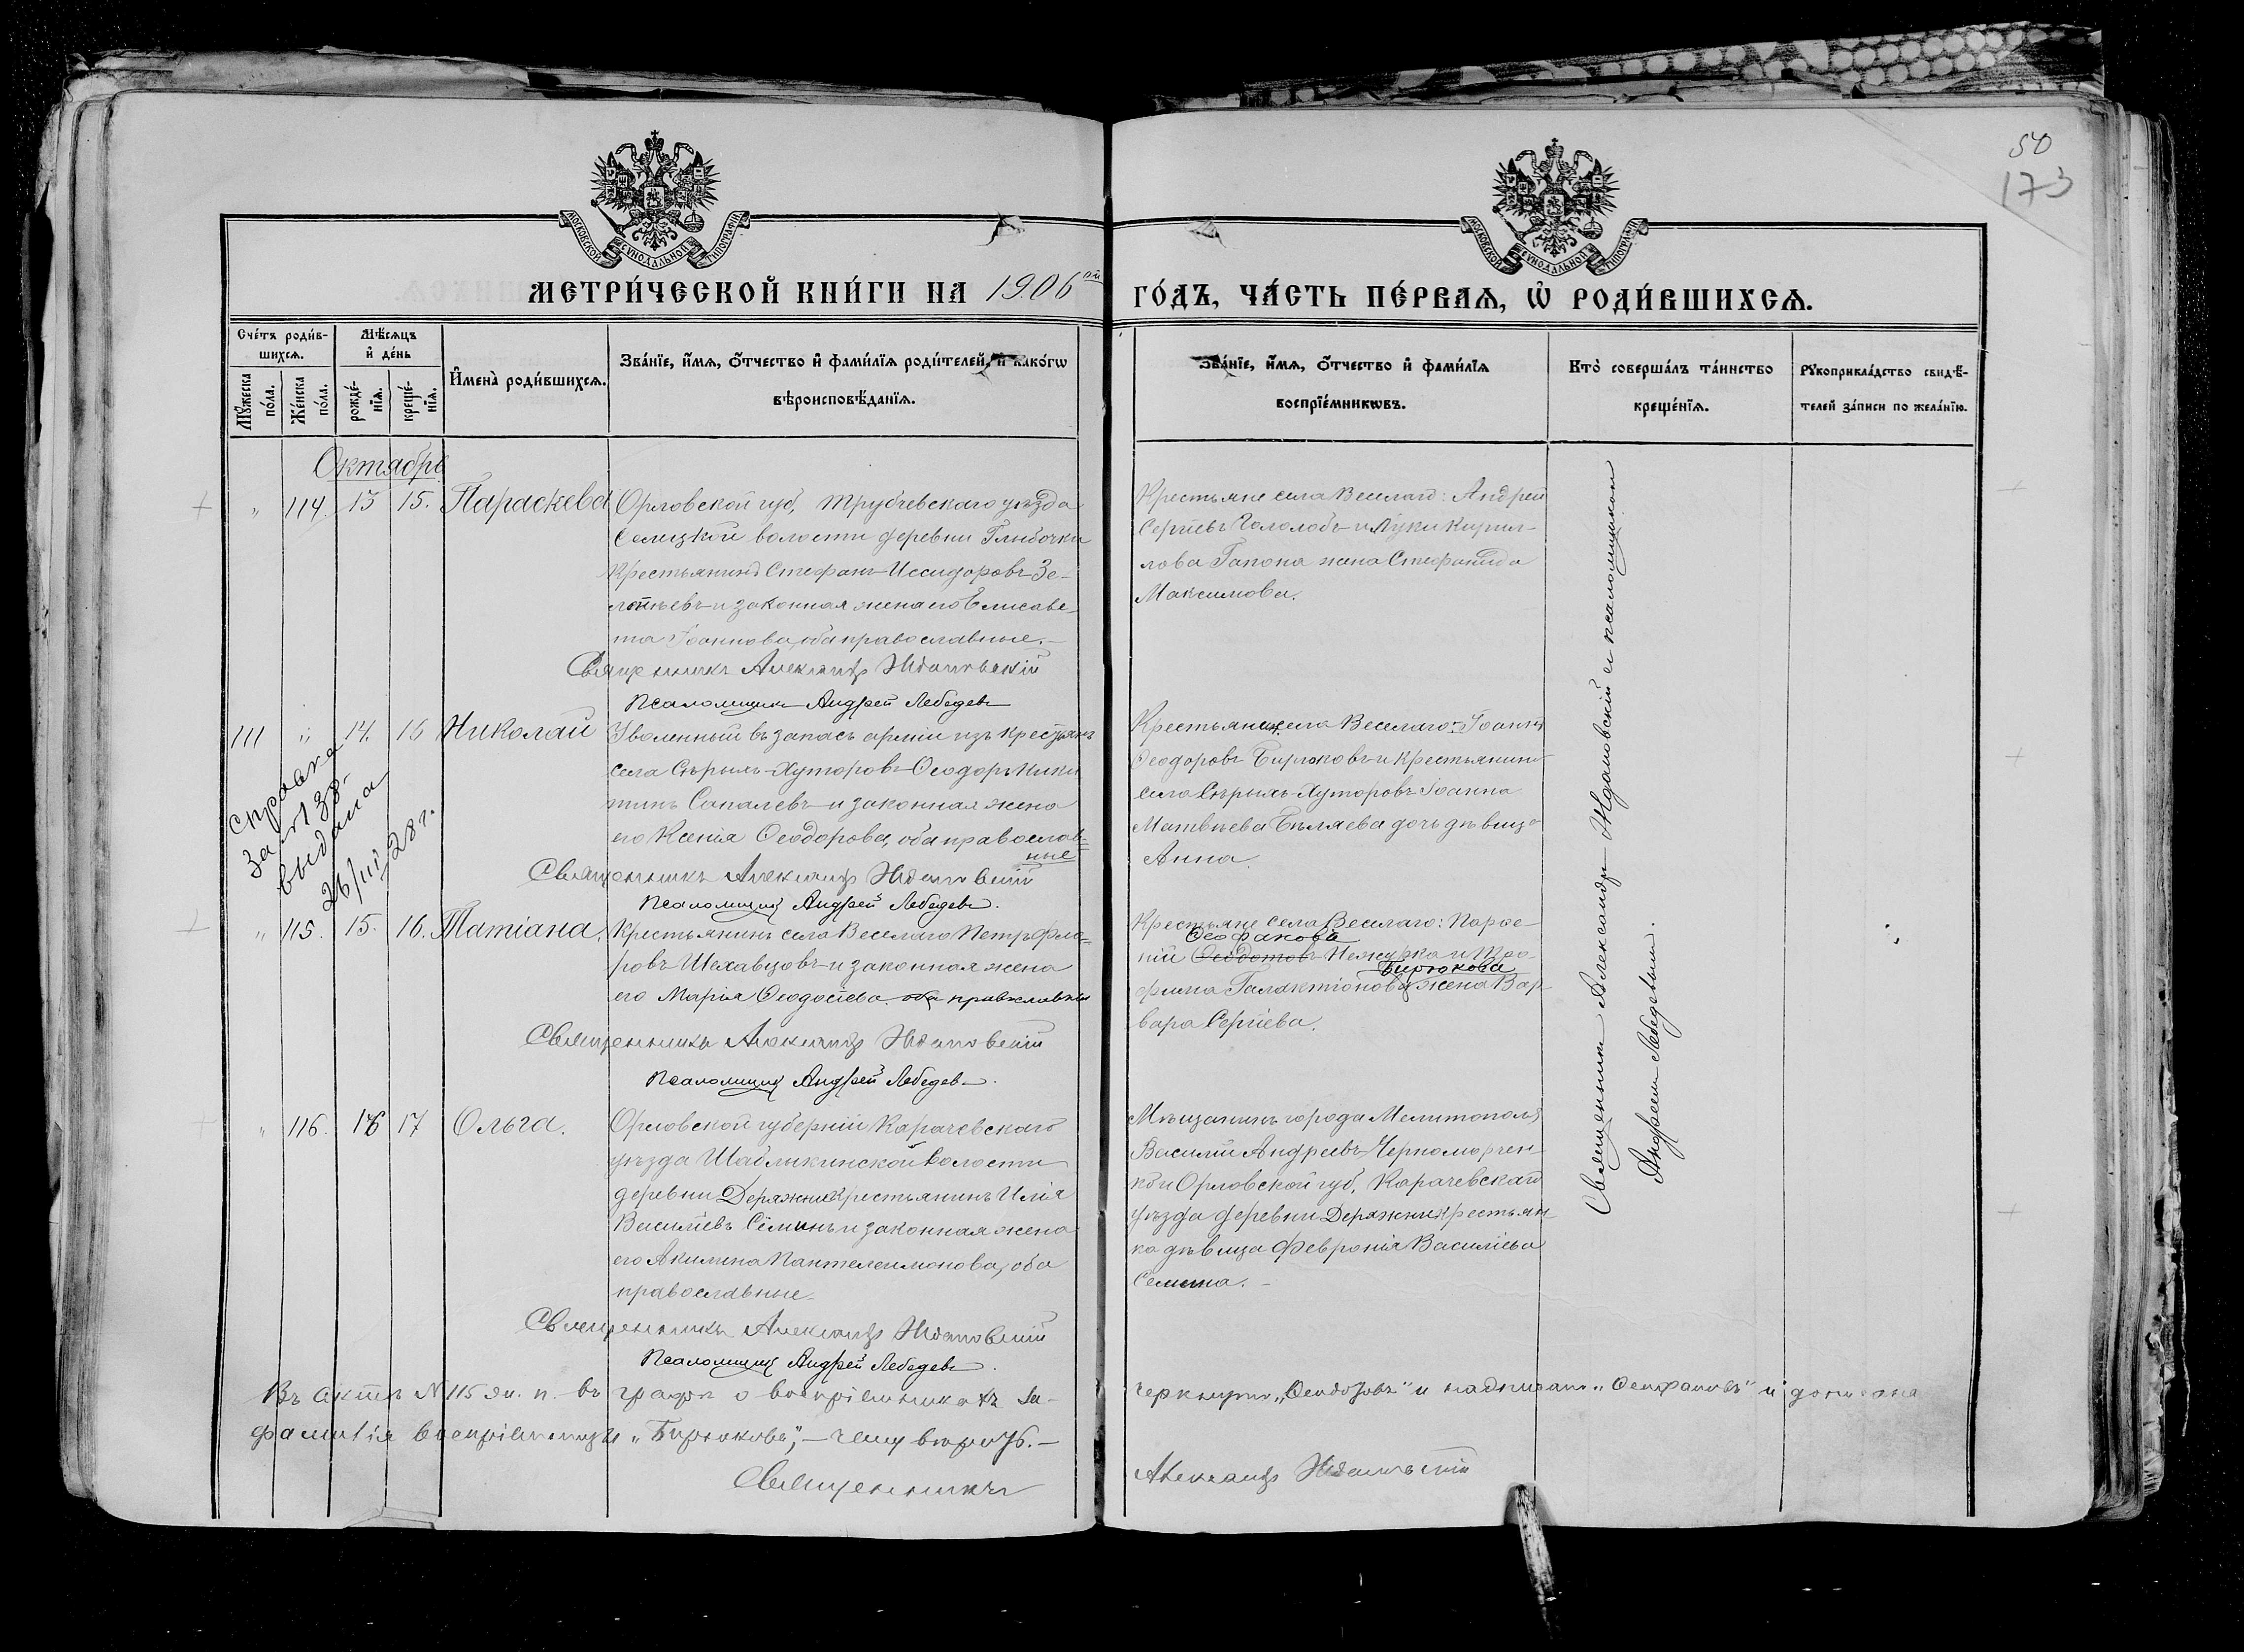 50
173
МОСКОВСКОЙ СУНОДАЛЬНОЙ ТИПОГРАФІИ
МОСКОВСКОЙ СУНОДАЛЬНОЙ ТИПОГРАФІИ
МЕТРИ́ЧЕСКОЙ КНИ́ГИ НА 1906ой ГО́ДЪ, ЧА́СТЬ ПЕ́РВАѦ, Ѡ҆ РОДИ́ВШИХСѦ.
Сче́тъ роди́в-
шихсѧ.
Мѣ́сѧцъ
и҆ де́нь
Мꙋ́жеска
по́ла.
Же́нска
по́ла.
рожде́-
нїѧ.
креще́-
нїѧ.
И҆мена̀ роди́вшихсѧ.
Зва́нїе, и҆́мѧ, о҆́тчество и҆ фами́лїѧ роди́телей, и҆ како́гѡ
вѣроисповѣ́данїѧ.
Зва́нїе, и҆́мѧ, о҆́тчество и҆ фами́лїѧ
воспрїе́мникѡвъ.
Кто̀ соверша́лъ та́инство
креще́нїѧ.
Рꙋкоприкла́дство свидѣ́-
телей за́писи по жела́нїю.
Октябрь
" 114. 13 15. Параскева
Орловской губ, Трубчевскаго уѣзда
Селецкой волости деревни Глыбочки
Крестьянинъ Стефанъ Иссидоровъ Зе-
и законная жена его Елисаве-
та Іоаннова, оба православные.
Священникъ Александръ Ждановскій
Псаломщикъ Андрей Лебедевъ
Крестьяне села Веселаго: Андрей
Сергіевъ Гололобъ и Луки Кирил-
лова Гапона жена Стефанида
Максимова.
111 " 14. 16 Николай
Уволенный въ запасъ арміи изъ крестьянъ
села Сѣрыхъ-Хуторовъ Ѳеодоръ Ники-
тинъ Сапалевъ и законная жена
его Ксенія Ѳеодорова, оба православ-
ные
Священникъ Александръ Ждановскій
Псаломщикъ Андрей Лебедевъ.
Крестьянинъ села Веселаго: Іоаннъ
Ѳеодоровъ Бирюковъ и крестьянина
села Сѣрыхъ-Хуторовъ Іоанна
Матвѣева Бѣляева дочь дѣвица
Анна.
Справка
за № 138
выдана
26/III 28 г.
" 115. 15. 16. Татіана.
Крестьянинъ села Веселаго Петръ Фло-
ровъ Шехавцовъ и законная жена
его Марія Ѳеодосіева. оба православные
Священникъ Александръ Ждановскій
Псаломщикъ Андрей Лебедевъ.
Крестьяне села Веселаго: Парѳе-
Ѳеофановъ
ній Ѳеодотовъ и Тро-
Бирюкова
фима Галактіонова жена Вар-
вара Сергіева.
" 116. 16 17 Ольга.
Орловской губерніи Карачевскаго
уѣзда Шаблыкинской волости
деревни Деряжни крестьянинъ Илія
Василіевъ Сёминъ и законная жена
его Акилина Пантелеимонова, оба
православные.
Священникъ Александръ Ждановскій
Псаломщикъ Андрей Лебедевъ.
Мѣщанинъ города Мелитополя
Василій Андреевъ Черноморчен-
ко и Орловской губ. Карачевскаго
уѣзда деревни Деряжни крестьян-
ка дѣвица Февронія Василіева
Семина.
Священникъ Александръ Ждановскій съ псаломщикомъ
Андреемъ Лебедевымъ.
Въ актѣ № 115 ж. п. въ графѣ о воспріемникахъ за-
черкнуто „Ѳеодотовъ" и надписано „Ѳеофановъ" и дописана
фамилія воспріемницы „Бирюкова", — чему вѣрить. —
Священникъ Александръ Ждановскій